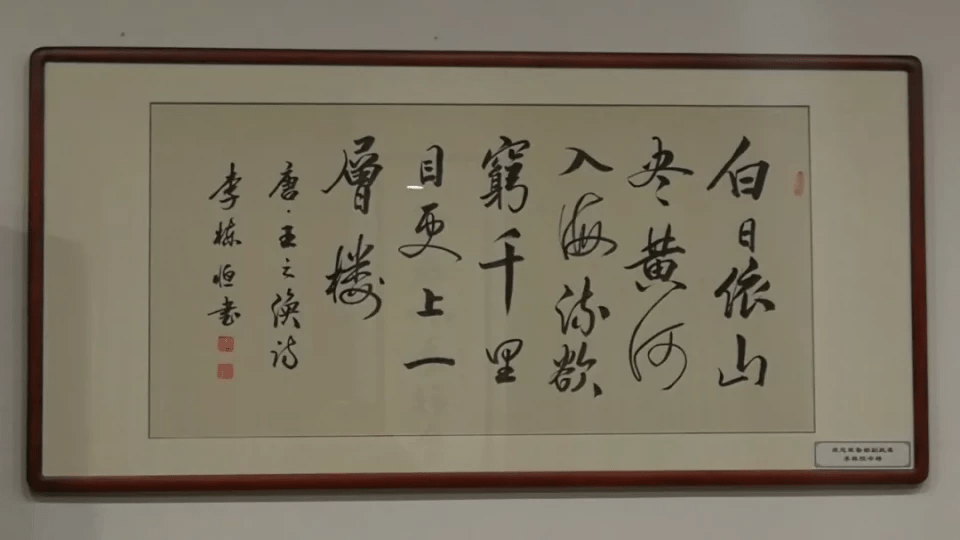 白日依山
尽黄河
入海流欲
窮千里
目更上一
層楼
唐·王之渙诗
李栋恒书